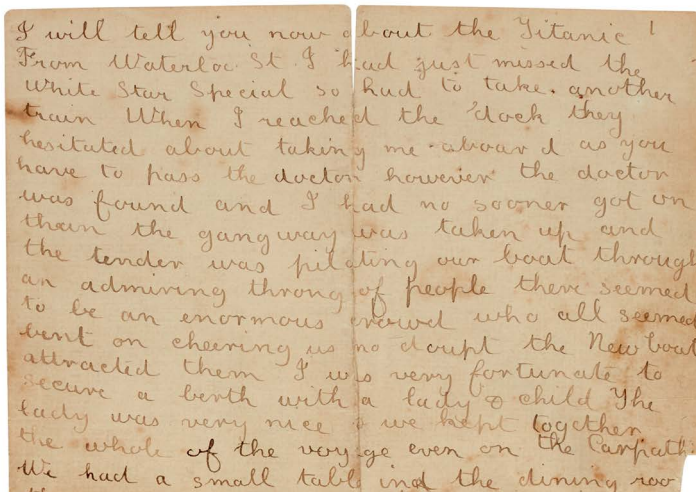 I will tell you now about the Titanic !
From Waterloo St. I had just missed the
White Star Special so had to take another
train When I reached the dock they
hesitated about taking me aboard as you
have to pass the doctor however the doctor
was found and I had no sooner got on
than the gangway was taken up and
the tender was piloting our boat through
an admiring throng of people there seemed
to be an enormous crowd who all seemed
bent on cheering us no doupt the New boat
attracted them I was very fortunate to
secure a berth with a lady & child The
lady was very nice & we kept together
the whole of the voyage even on the Carpath
We had a small table ind the dining roo